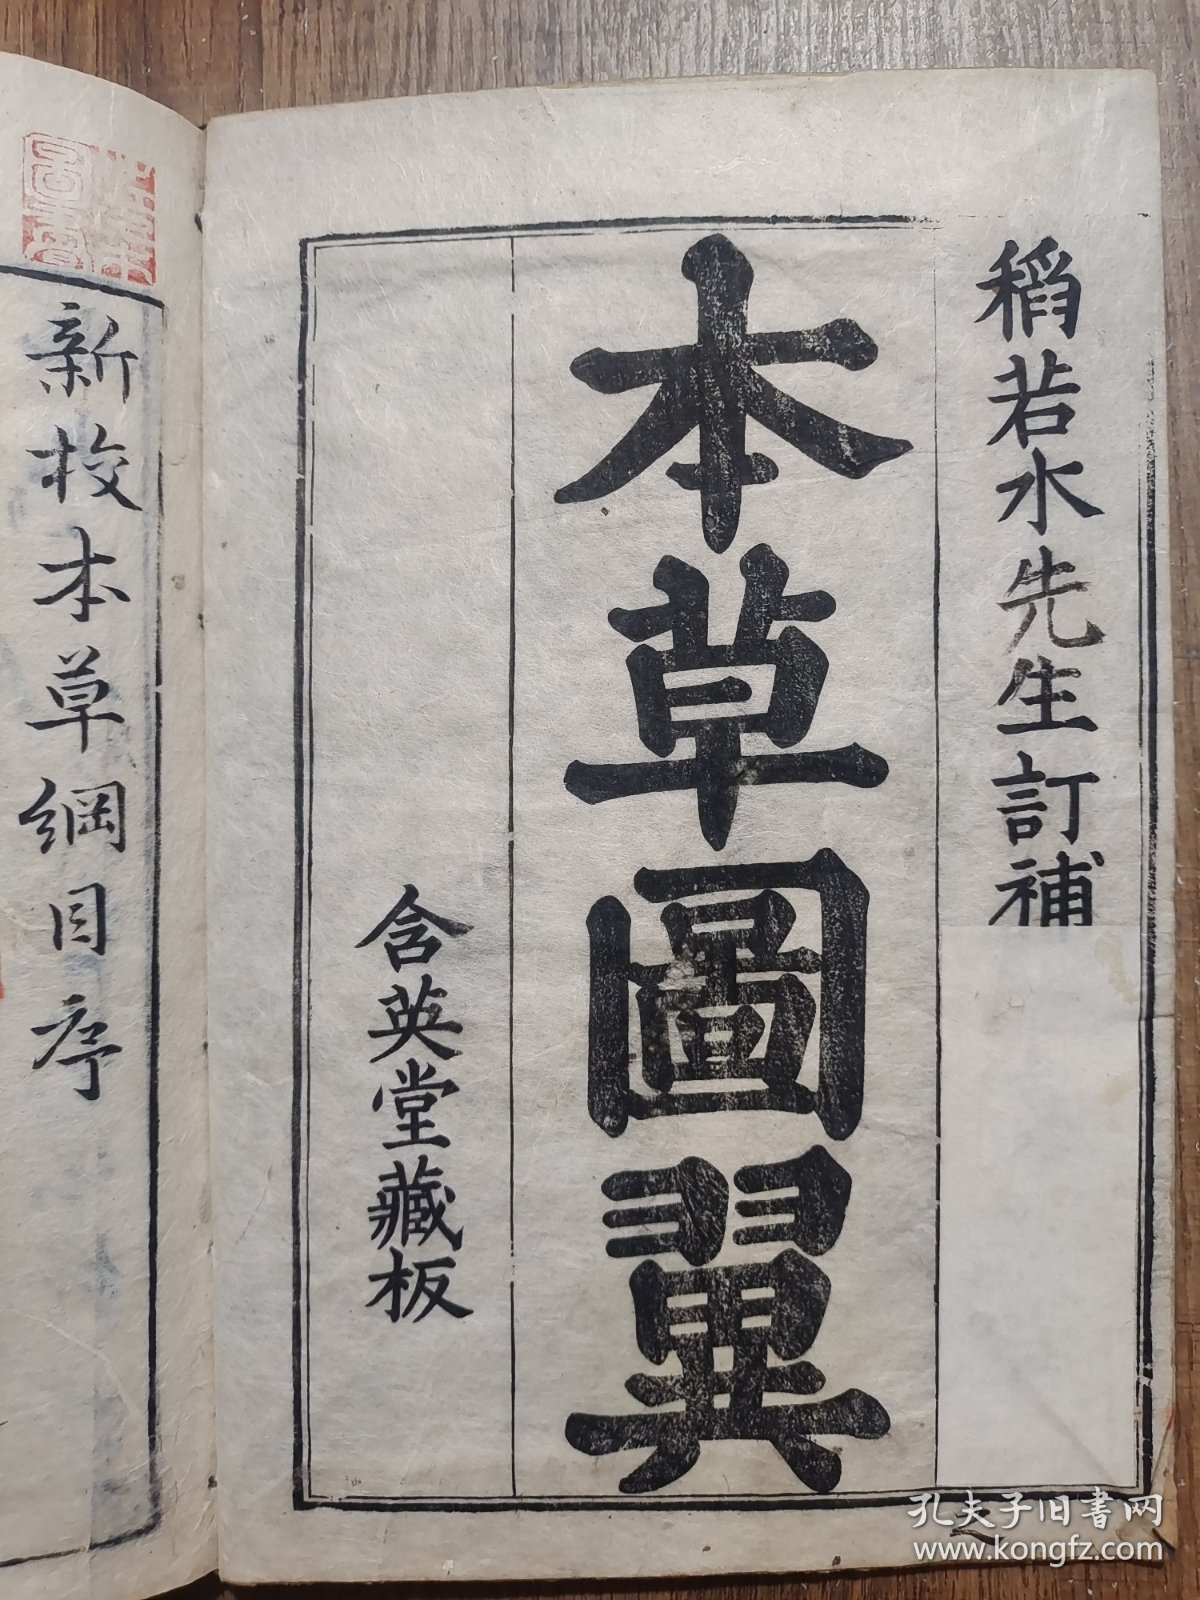 稻若水先生訂補
本草圖翼
含英堂藏板
新校本草綱目序
孔夫子旧书网
www.kongfz.com